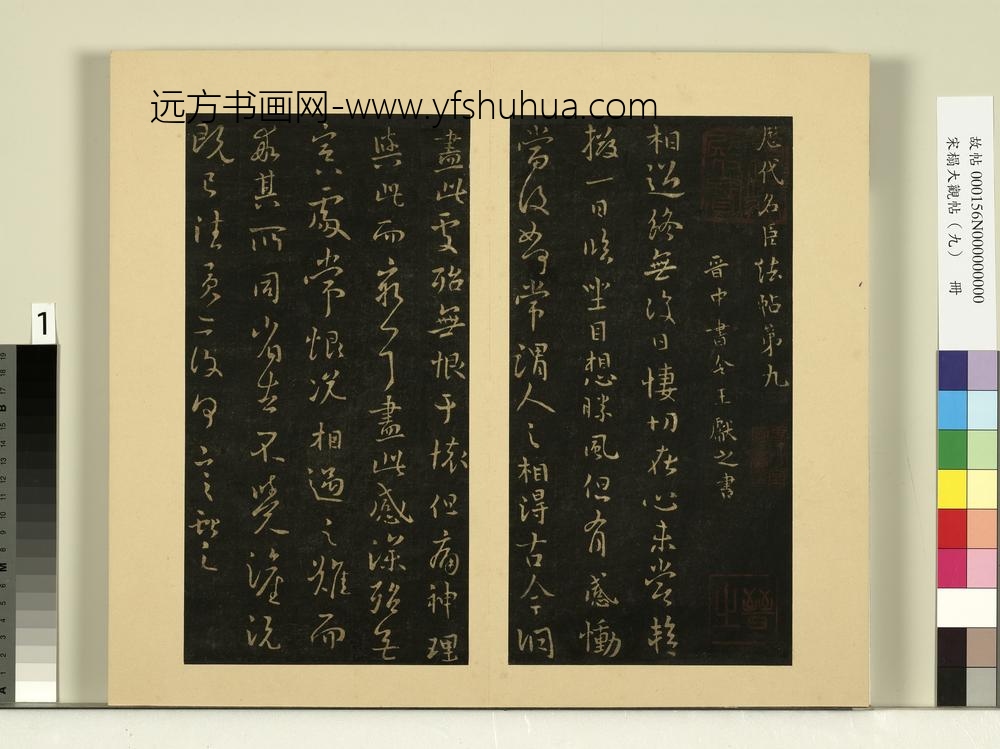 远方书画网-www.yfshuhua.com
歷代名臣法帖第九
晉中書令王獻之書
相過終無復日悽切在心未嘗暫
掇一日臨坐目想勝風但有感慟
當復如何常謂人之相得古今洞
盡此處殆無恨于懷但痛神理
與此而窮耳盡此感深殆無
冥處常恨況相遇之難而
乖其所同省告不覺涕流
既已往矣亦復何言獻之
故帖 000156N000000000
宋榻大觀帖（九） 冊
1